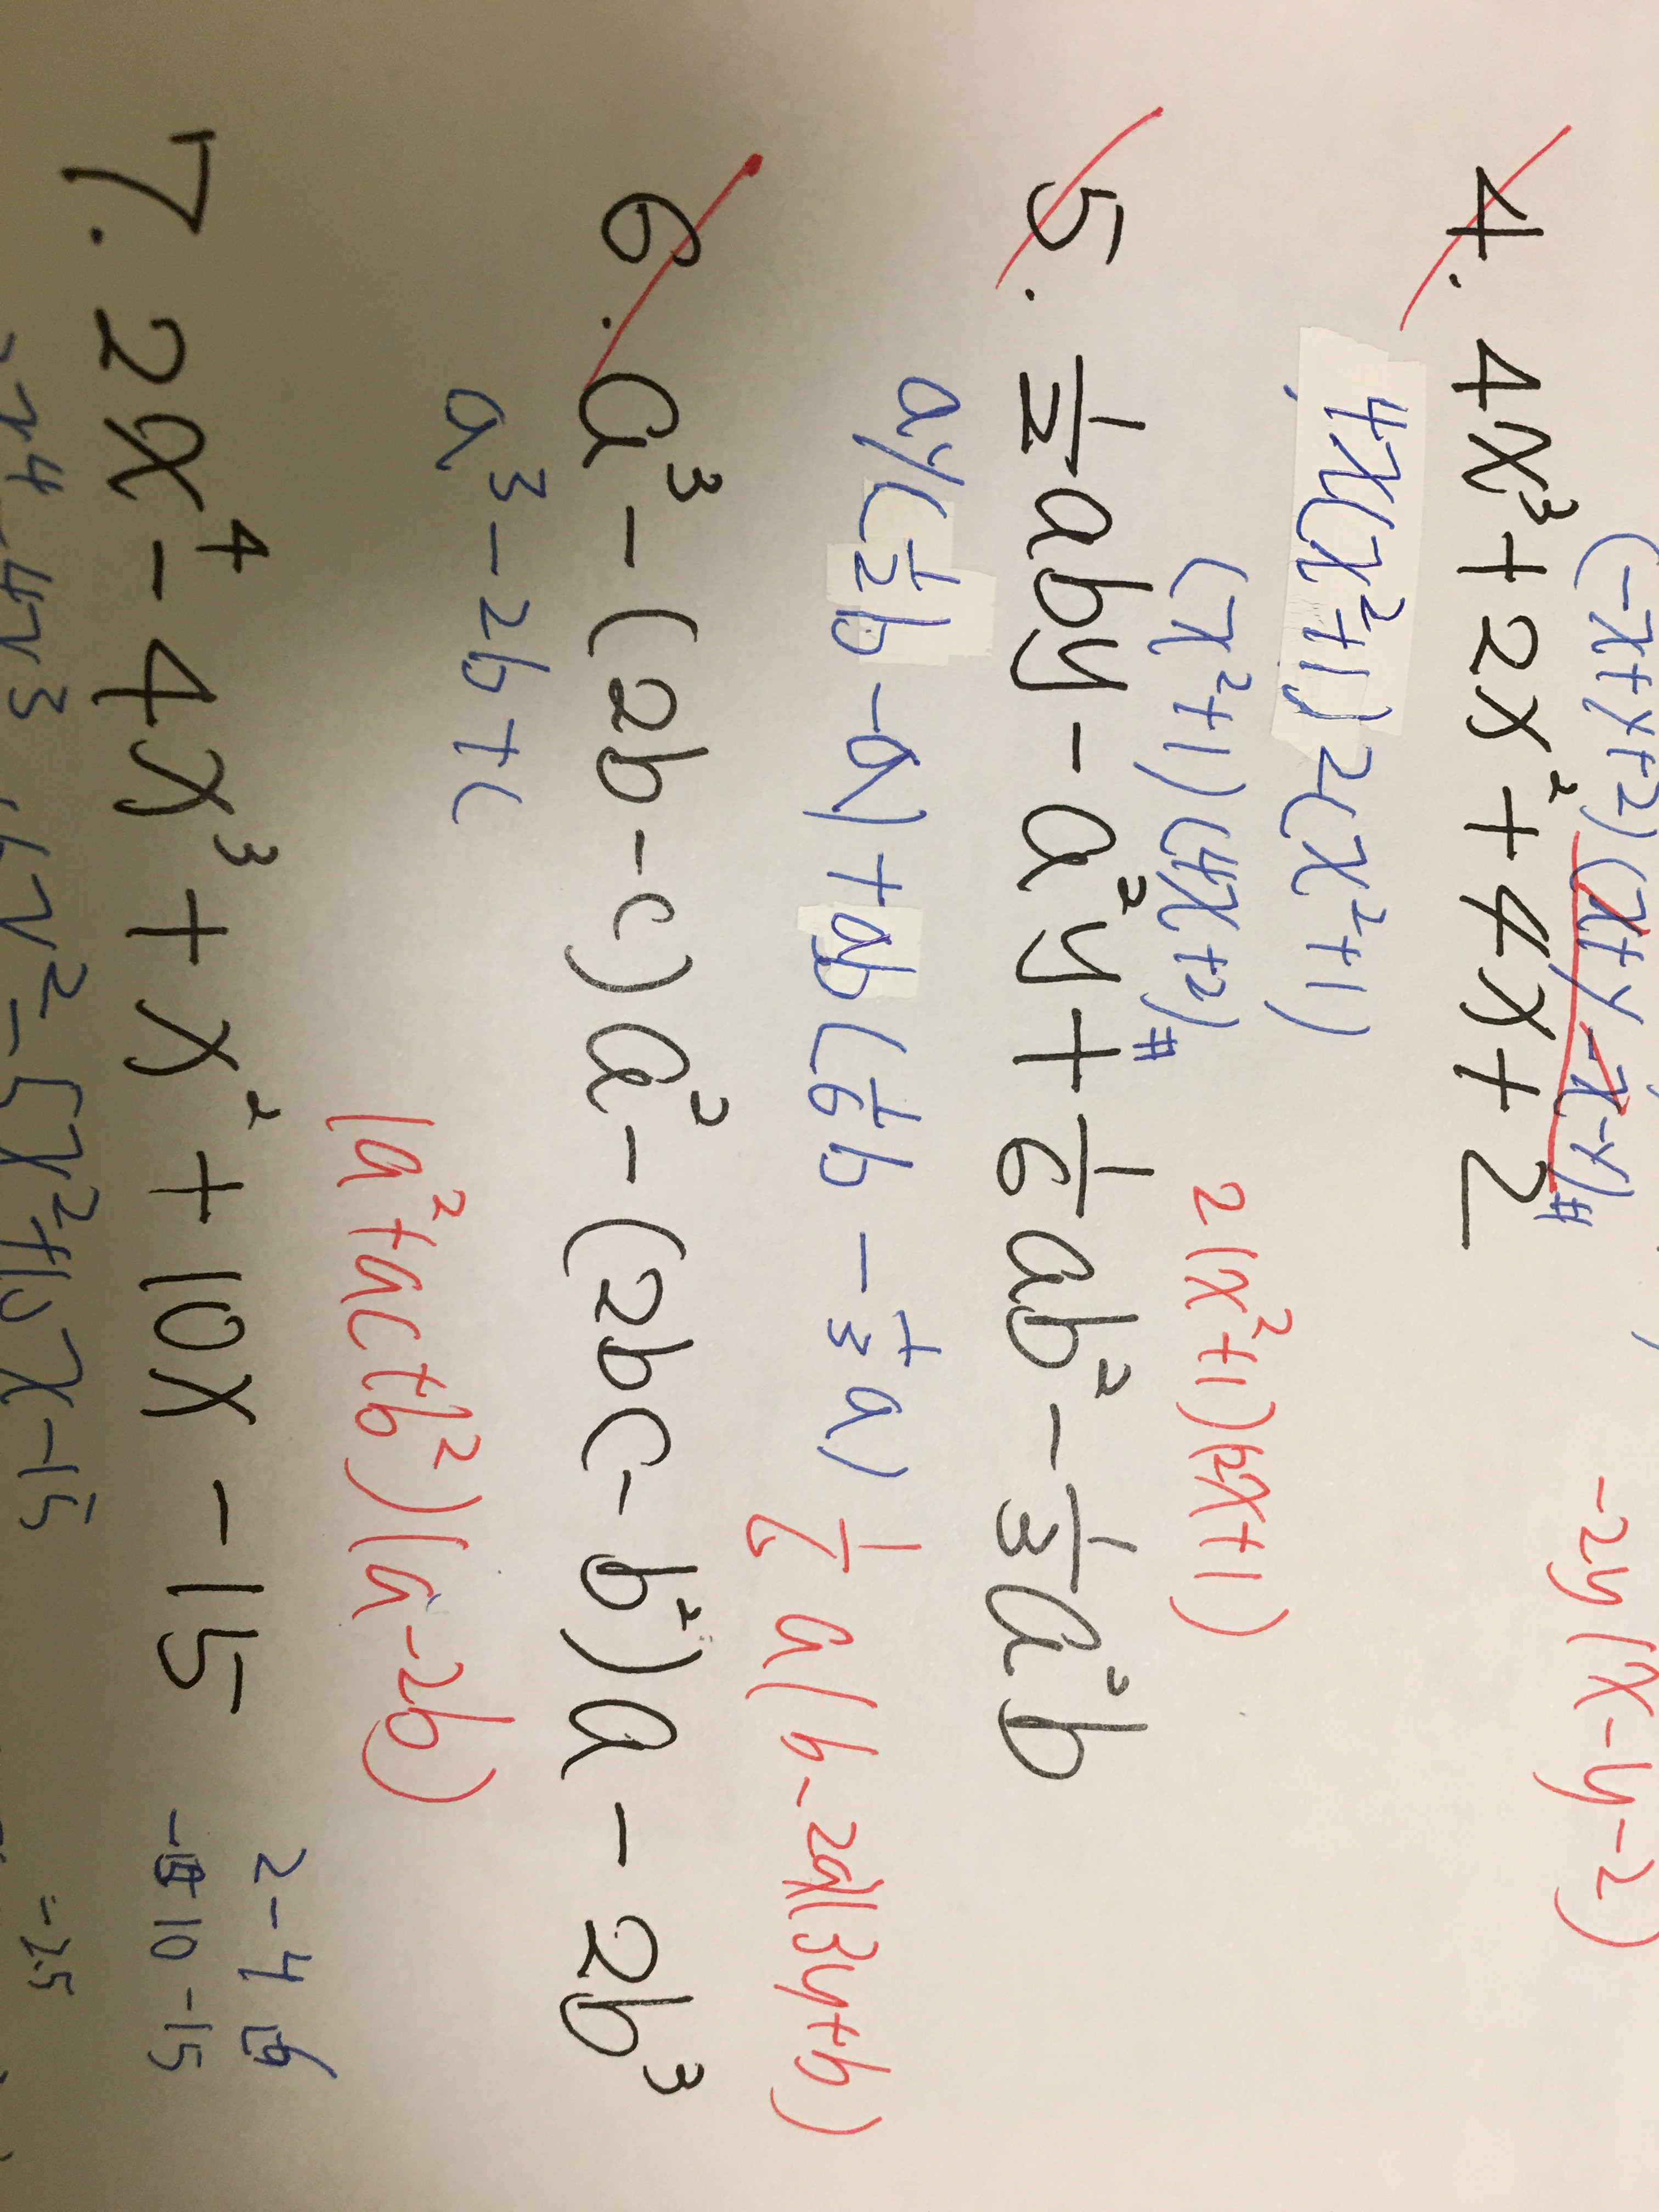 (-x+y+2)(x+y-x-y)#
-2y(x-y-2)
4. 4x³+2x²+4x+2
4x(x²+1) 2(x²+1)
(x²+1)(4x+2)#
2(x²+1)(2x+1)
5. 1/2 aby - a²y + 1/6 ab² - 1/3 a²b
ay(1/2 b - a) + ab(1/6 b - 1/3 a)
1/6 a(b-2a)(3y+b)
6. a³ - (2b-c)a² - (2bc-b²)a - 2b³
a³-2b+c
(a²+ac+b²)(a-2b)
2-4
10-15
7. 2x⁴-4x³+x²+10x-15
-2.5